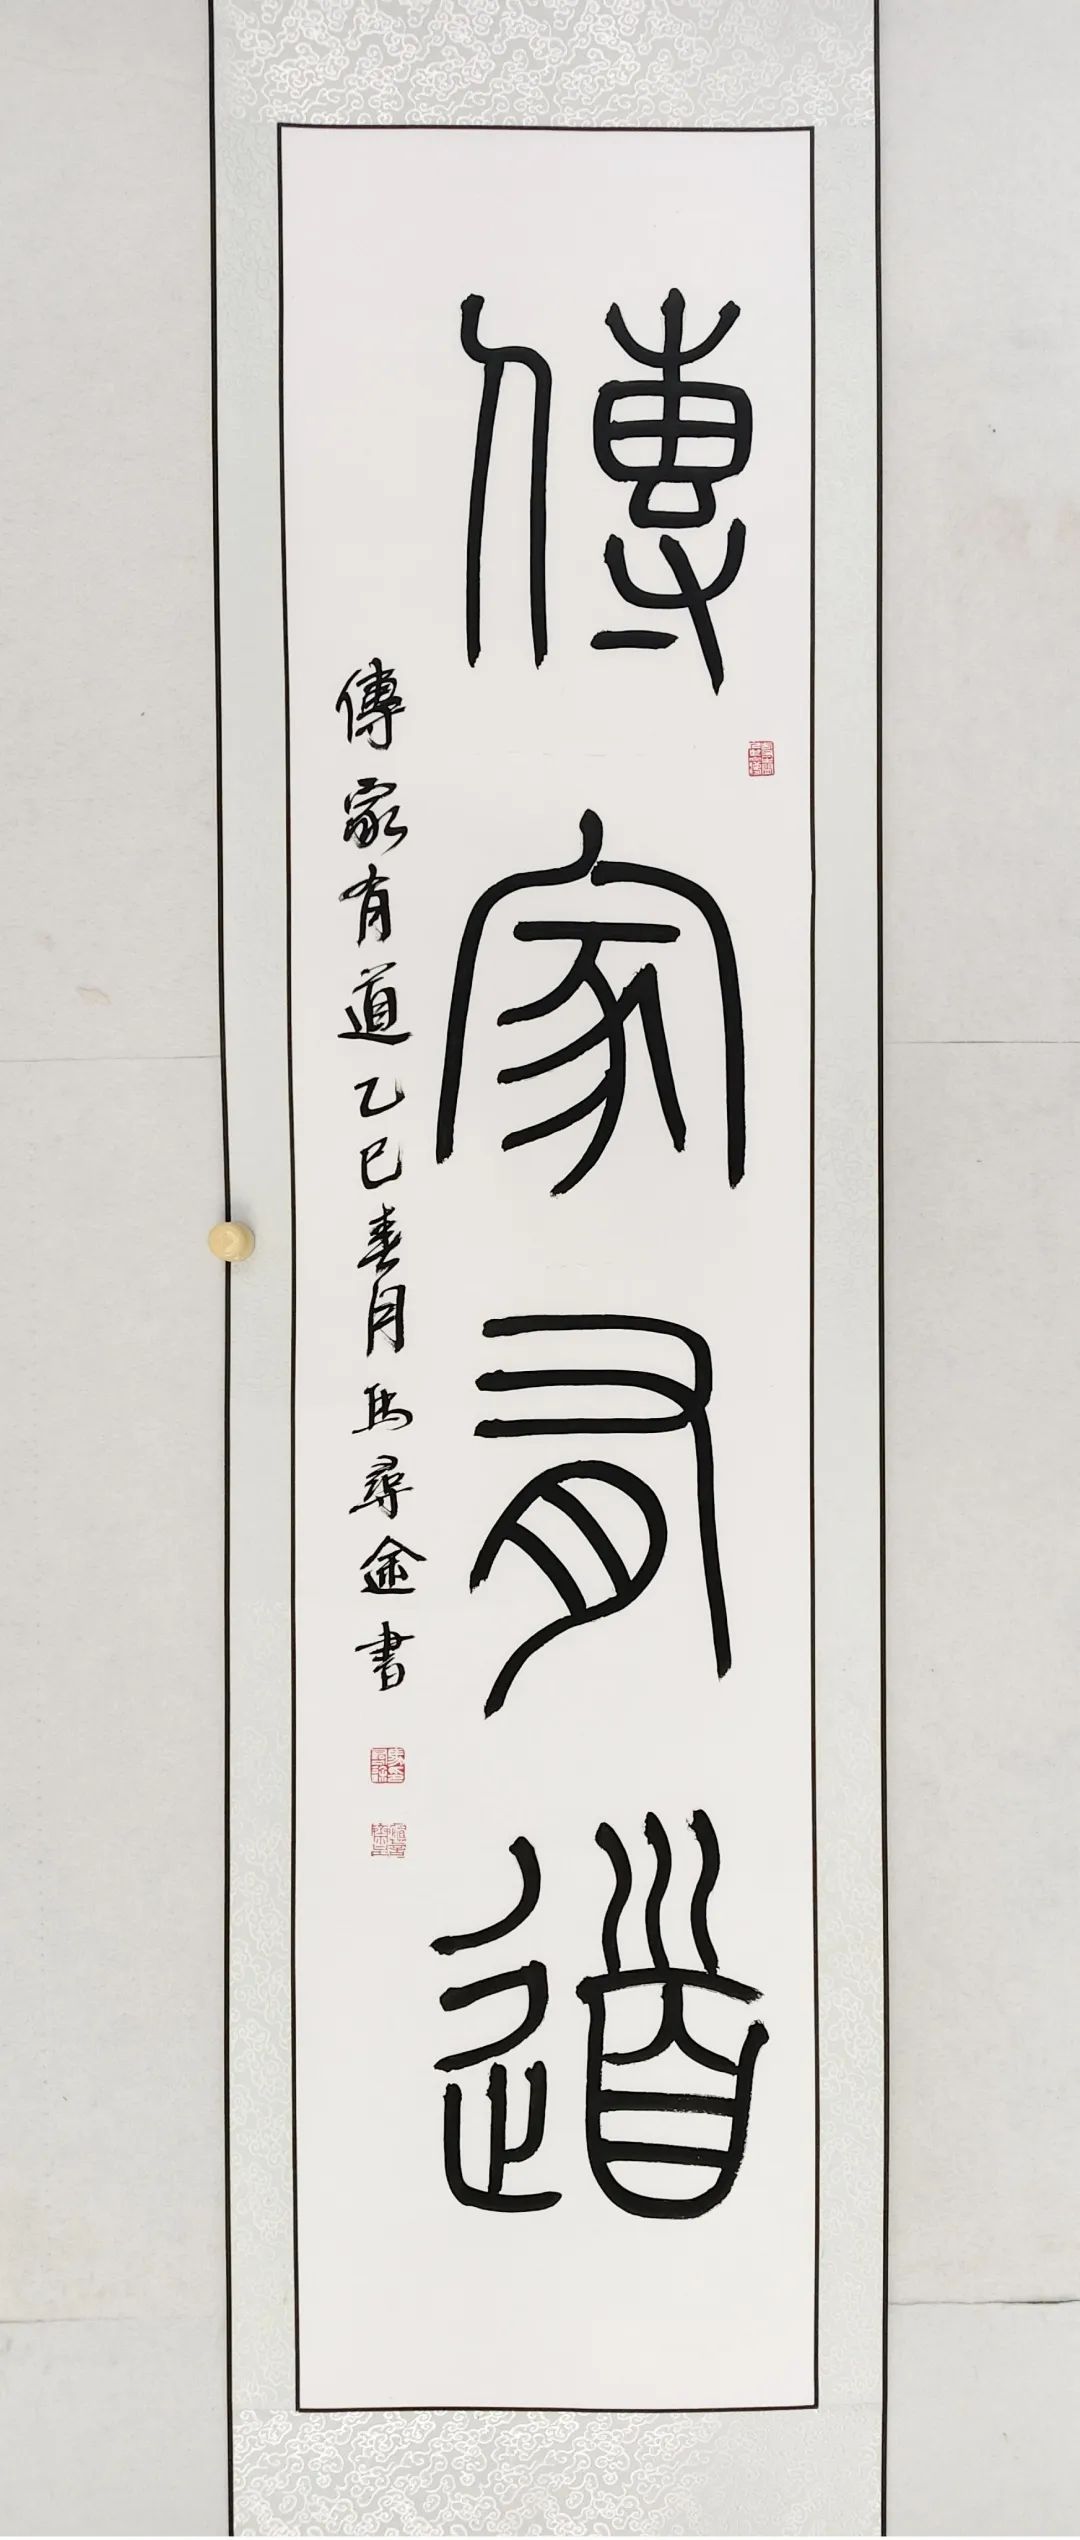 傳家有道
傳家有道乙巳春月馬尋途書